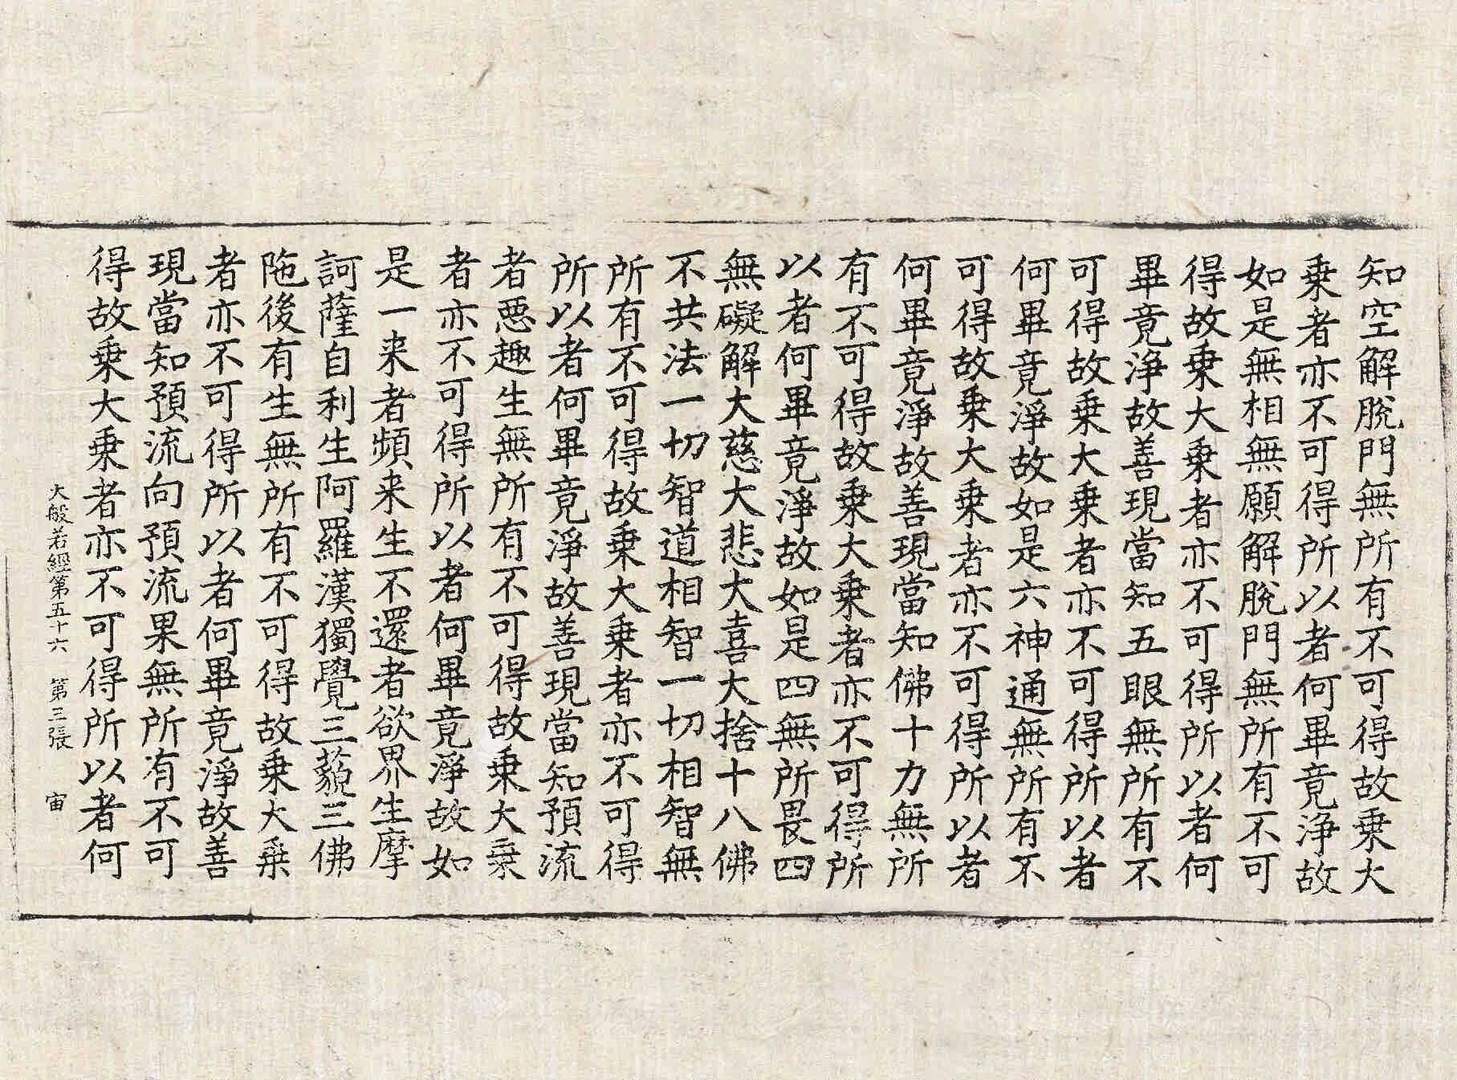 知空解脫門無所有不可得故乗大
乗者亦不可得所以者何畢竟淨故
如是無相無願解脫門無所有不可
得故乗大乗者亦不可得所以者何
畢竟淨故善現當知五眼無所有不
可得故乗大乗者亦不可得所以者
何畢竟淨故如是六神通無所有不
可得故乗大乗者亦不可得所以者
何畢竟淨故善現當知佛十力無所
有不可得故乗大乗者亦不可得所
以者何畢竟淨故如是四無所畏四
無礙解大慈大悲大喜大捨十八佛
不共法一切智道相智一切相智無
所有不可得故乗大乗者亦不可得
所以者何畢竟淨故善現當知預流
者惡趣生無所有不可得故乗大乗
者亦不可得所以者何畢竟淨故如
是一来者頻来生不還者欲界生摩
訶薩自利生阿羅漢獨覺三藐三佛
陁後有生無所有不可得故乗大乗
者亦不可得所以者何畢竟淨故善
現當知預流向預流果無所有不可
得故乗大乗者亦不可得所以者何
大般若經第五十六 第三張 宙